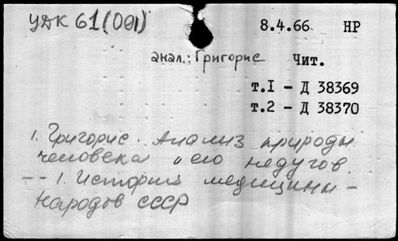 УДК 61(091)
8.4.66 НР
анал.: Григорис Чит.
т.I - Д 38369
т.2 - Д 38370
1. Григорис. Анализ природы
человека и его недугов.
-- 1. История медицины -
народов СССР